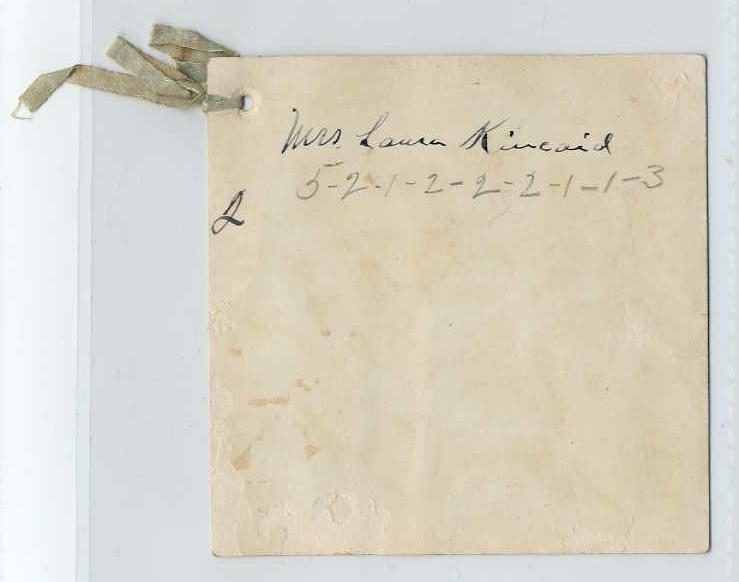 Mrs. Laura Kincaid
5-2-1-2-2-2-1-1-3
2